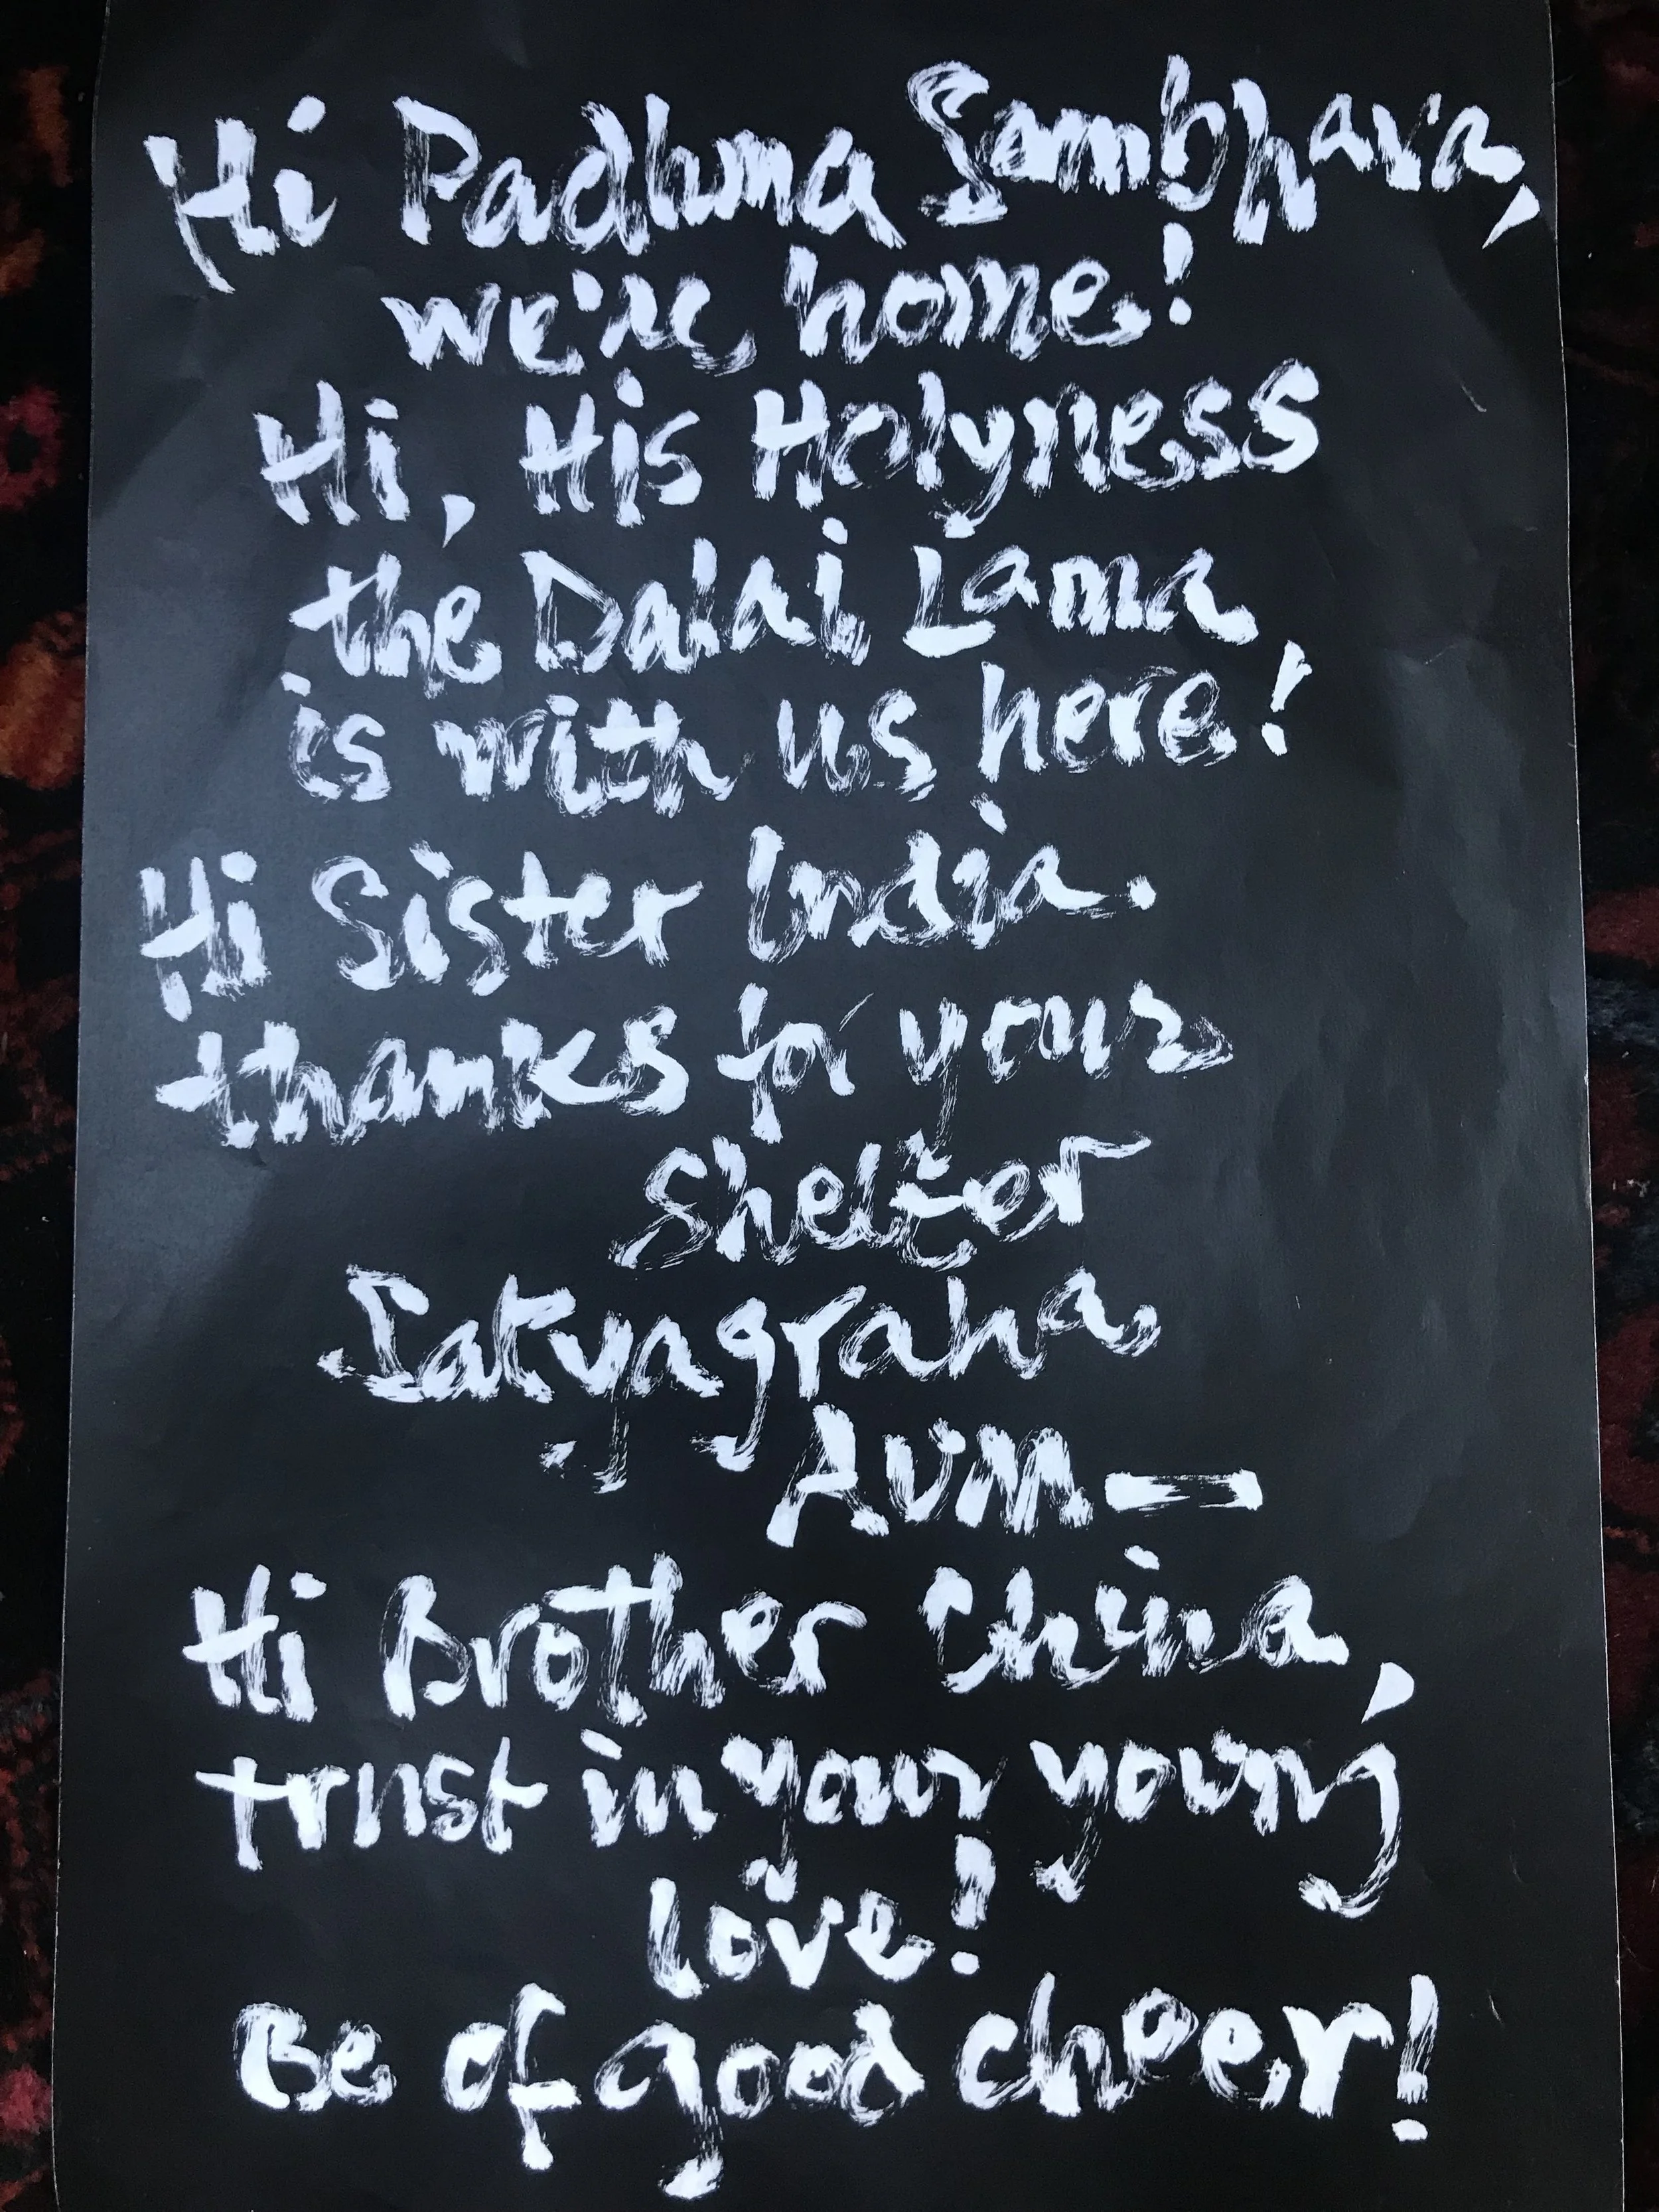 Hi Padhma Sambhava,
we're home!
Hi, His Holyness
the Dalai Lama
is with us here!
Hi Sister India.
thanks for your
Shelter
Satyagraha
AUM—
Hi Brother China,
trust in your young
love!
Be of good cheer!